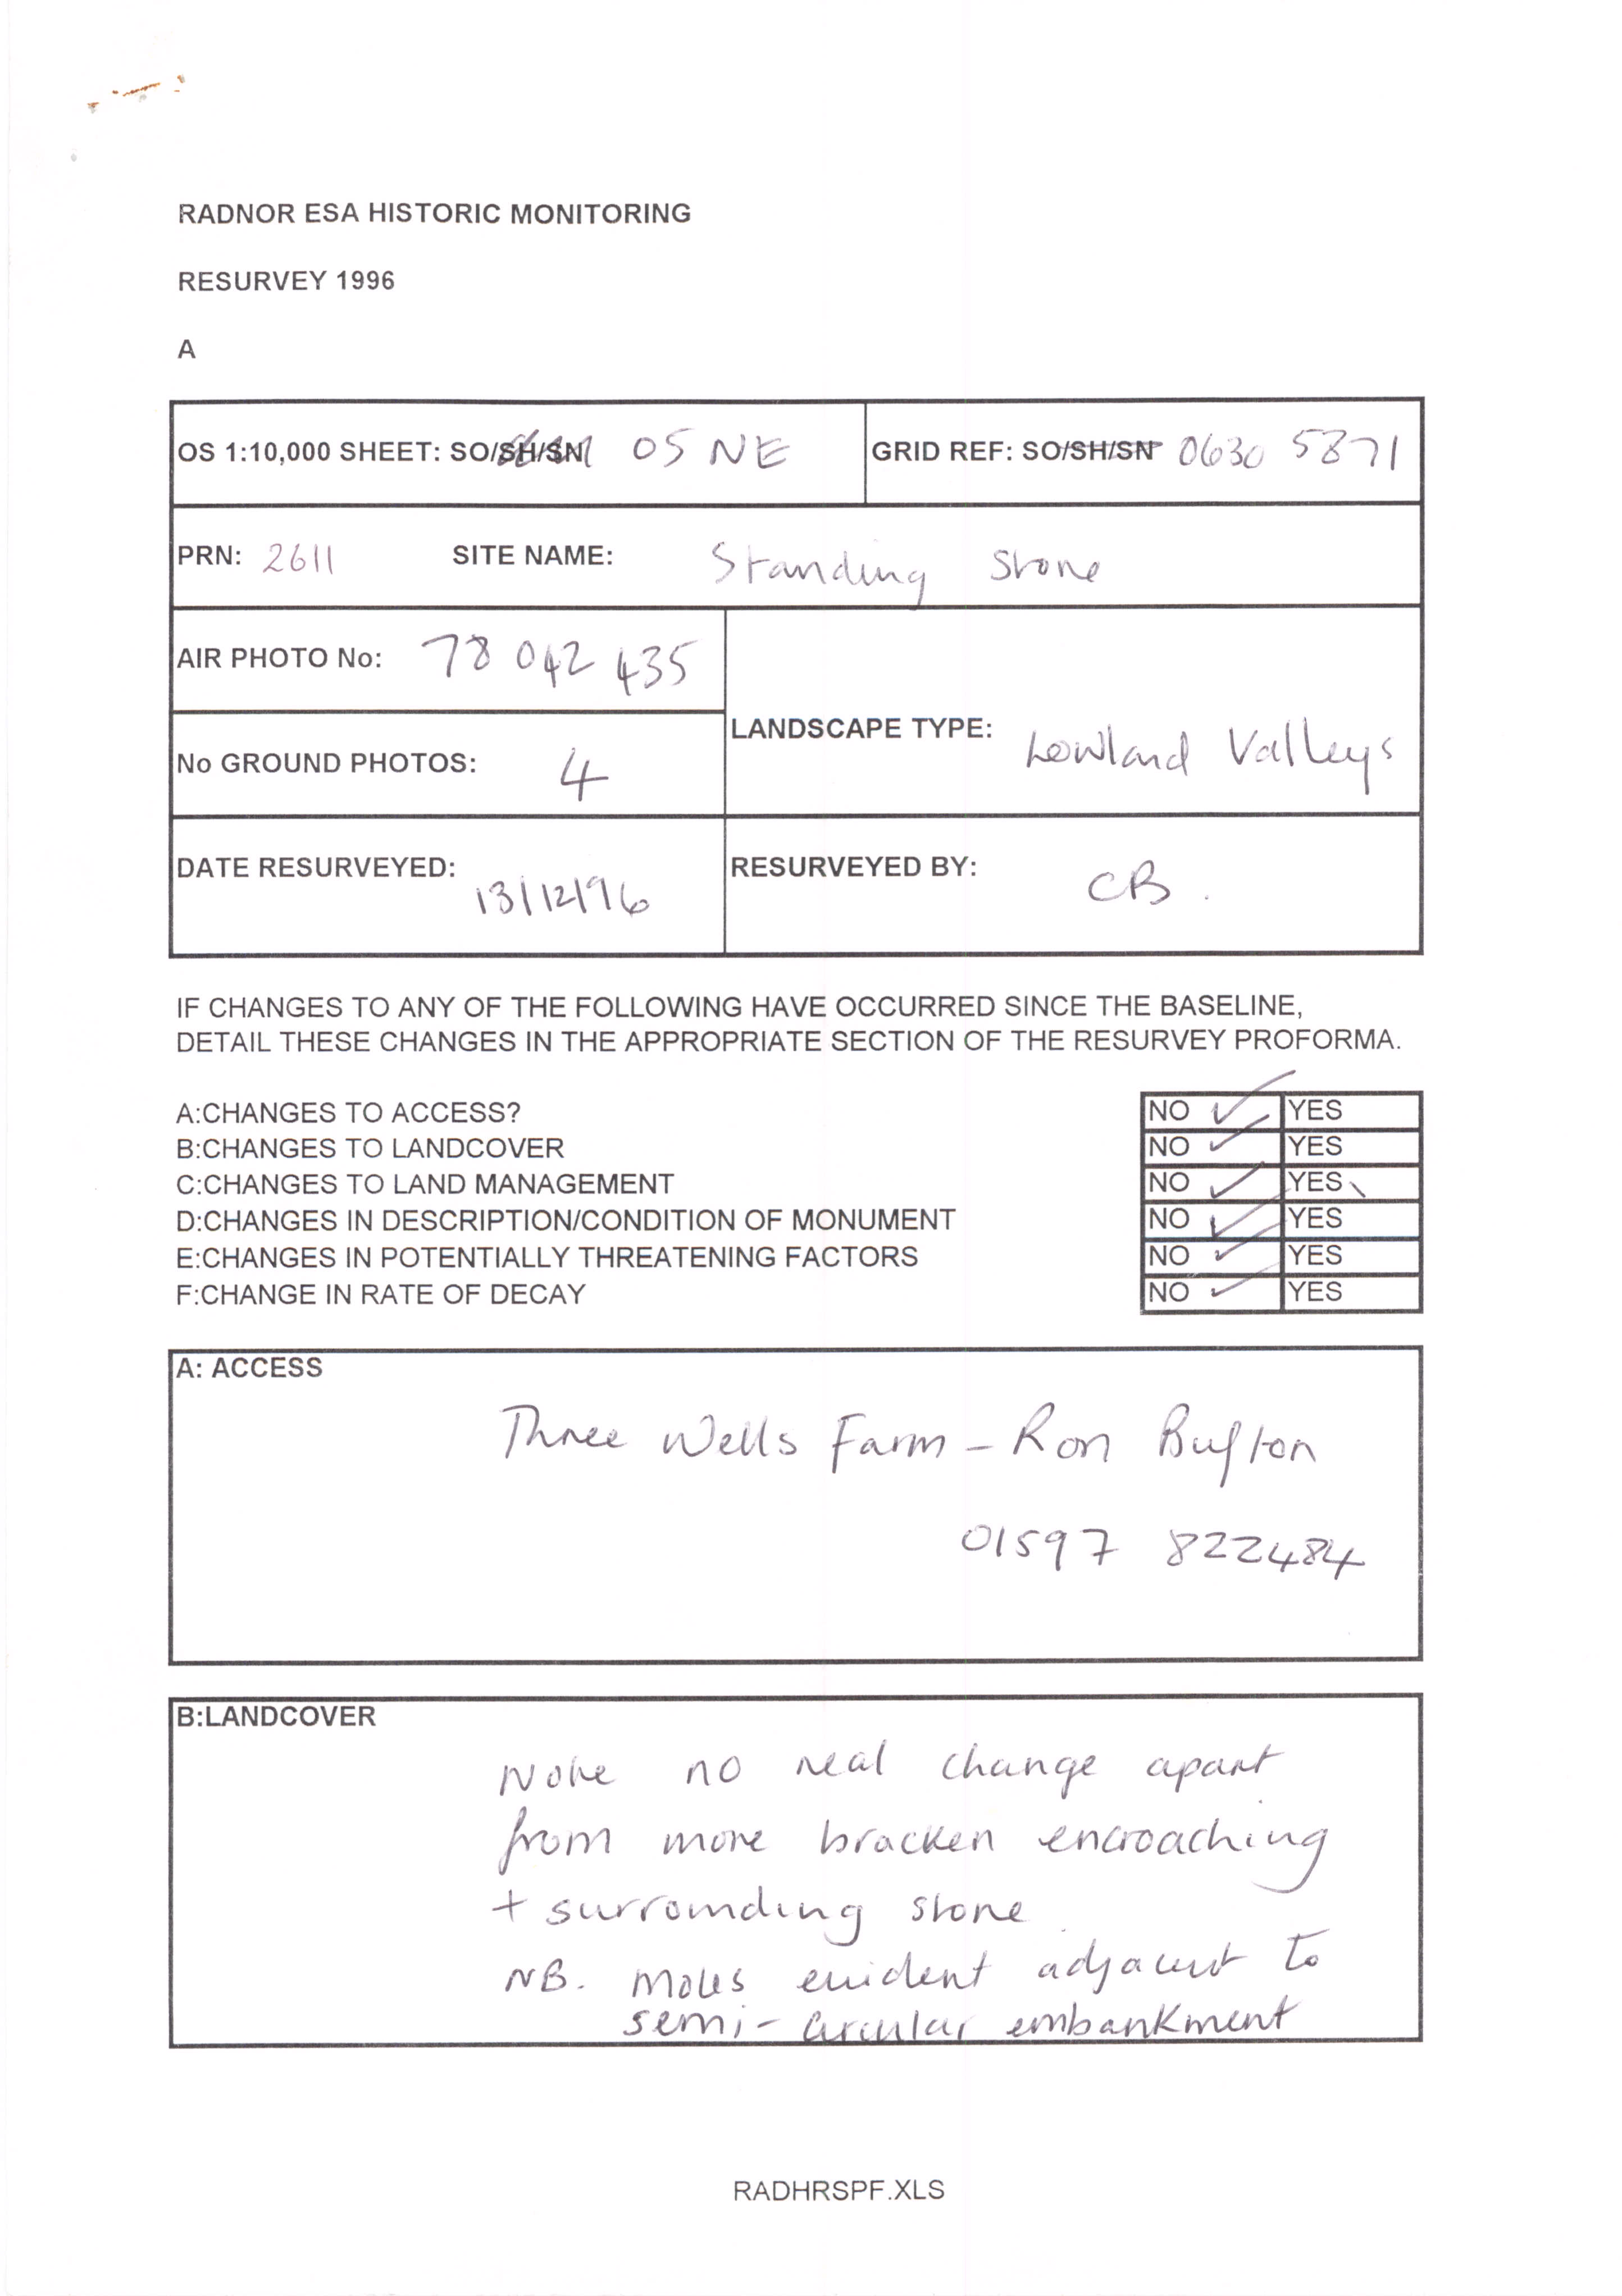 RADNOR ESA HISTORIC MONITORING
RESURVEY 1996
A
OS 1:10,000 SHEET: SO/SH/SN 05 NE
GRID REF: SO/SH/SN 0630 5871
PRN: 2611 SITE NAME: Standing Stone
AIR PHOTO No: 78 042 435
No GROUND PHOTOS: 4
LANDSCAPE TYPE: Lowland Valleys
DATE RESURVEYED: 13/12/96
RESURVEYED BY: CB.
IF CHANGES TO ANY OF THE FOLLOWING HAVE OCCURRED SINCE THE BASELINE,
DETAIL THESE CHANGES IN THE APPROPRIATE SECTION OF THE RESURVEY PROFORMA.
A:CHANGES TO ACCESS? NO ✓ YES
B:CHANGES TO LANDCOVER NO ✓ YES
C:CHANGES TO LAND MANAGEMENT NO ✓ YES
D:CHANGES IN DESCRIPTION/CONDITION OF MONUMENT NO ✓ YES
E:CHANGES IN POTENTIALLY THREATENING FACTORS NO ✓ YES
F:CHANGE IN RATE OF DECAY NO ✓ YES
A: ACCESS
Three Wells Farm - Ron Bufton
01597 822484
B:LANDCOVER
None no real change apart
from more bracken encroaching
+ surrounding stone
NB. Moles evident adjacent to
semi-circular embankment
RADHRSPF.XLS